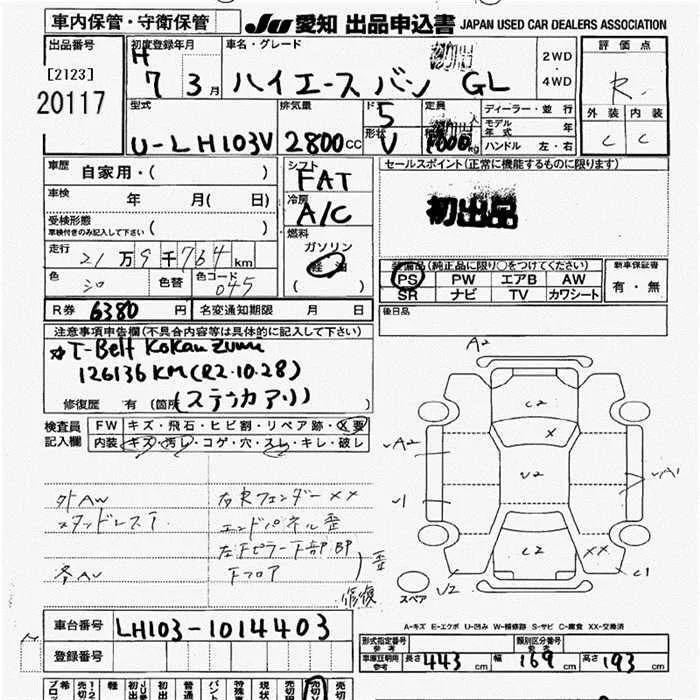 車内保管・守衛保管
JU 愛知 出品申込書 JAPAN USED CAR DEALERS ASSOCIATION
出品番号
[2123]
20117
初度登録年月
H 7 3月
車名・グレード
ハイエース バン GL
2WD・4WD
評価点
R
外装 内装
C C
型式
U-LH103V
排気量
2800cc
ドア
5
形状
V
定員
人
1000kg
ディーラー・並行
モデル年式 年
ハンドル 左・右
車歴 自家用・( )
車検 年 月( 日)
受検形態
車検付きのみ記入して下さい ( )
走行 21万9千764km
色 シロ 色替 色コード 045
シフト
FAT
冷房
A/C
燃料
ガソリン
軽油
( )
セールスポイント(正常に機能するものに限ります)
初出品
装備品(純正品に限り○をつけてください)
PS PW エアB AW
SR ナビ TV カワシート
新車保証書
有・無
R券 6380円 名変通知期限 月 日
後日品
注意事項申告欄(不具合内容等は具体的に記入して下さい)
☆T-Belt Kokan Zumi
126136KM(R2.10.28)
修復歴 有 (箇所 (ステッカアリ)
検査員記入欄
FW キズ・飛石・ヒビ割・リペア跡・X要
内装 キズ・汚レ・コゲ・穴・スレ・キレ・破レ
外AW 右Rフェンダー XX
スタッドレスT. エンドパネル歪
左Fピラー下部BP
冬AW Fフロア
歪
修復
A2
C2
X
A2
V2
A1
V1
C2
XX
C1
V2
スペア
A-キズ E-エクボ U-凹み W-補修跡 S-サビ C-腐食 XX-交換済
車台番号 LH103-1014403
登録番号
形式指定番号 参考
類別区分番号 参考
車庫証明用 参考 長さ 443cm 幅 169cm 高さ 193cm